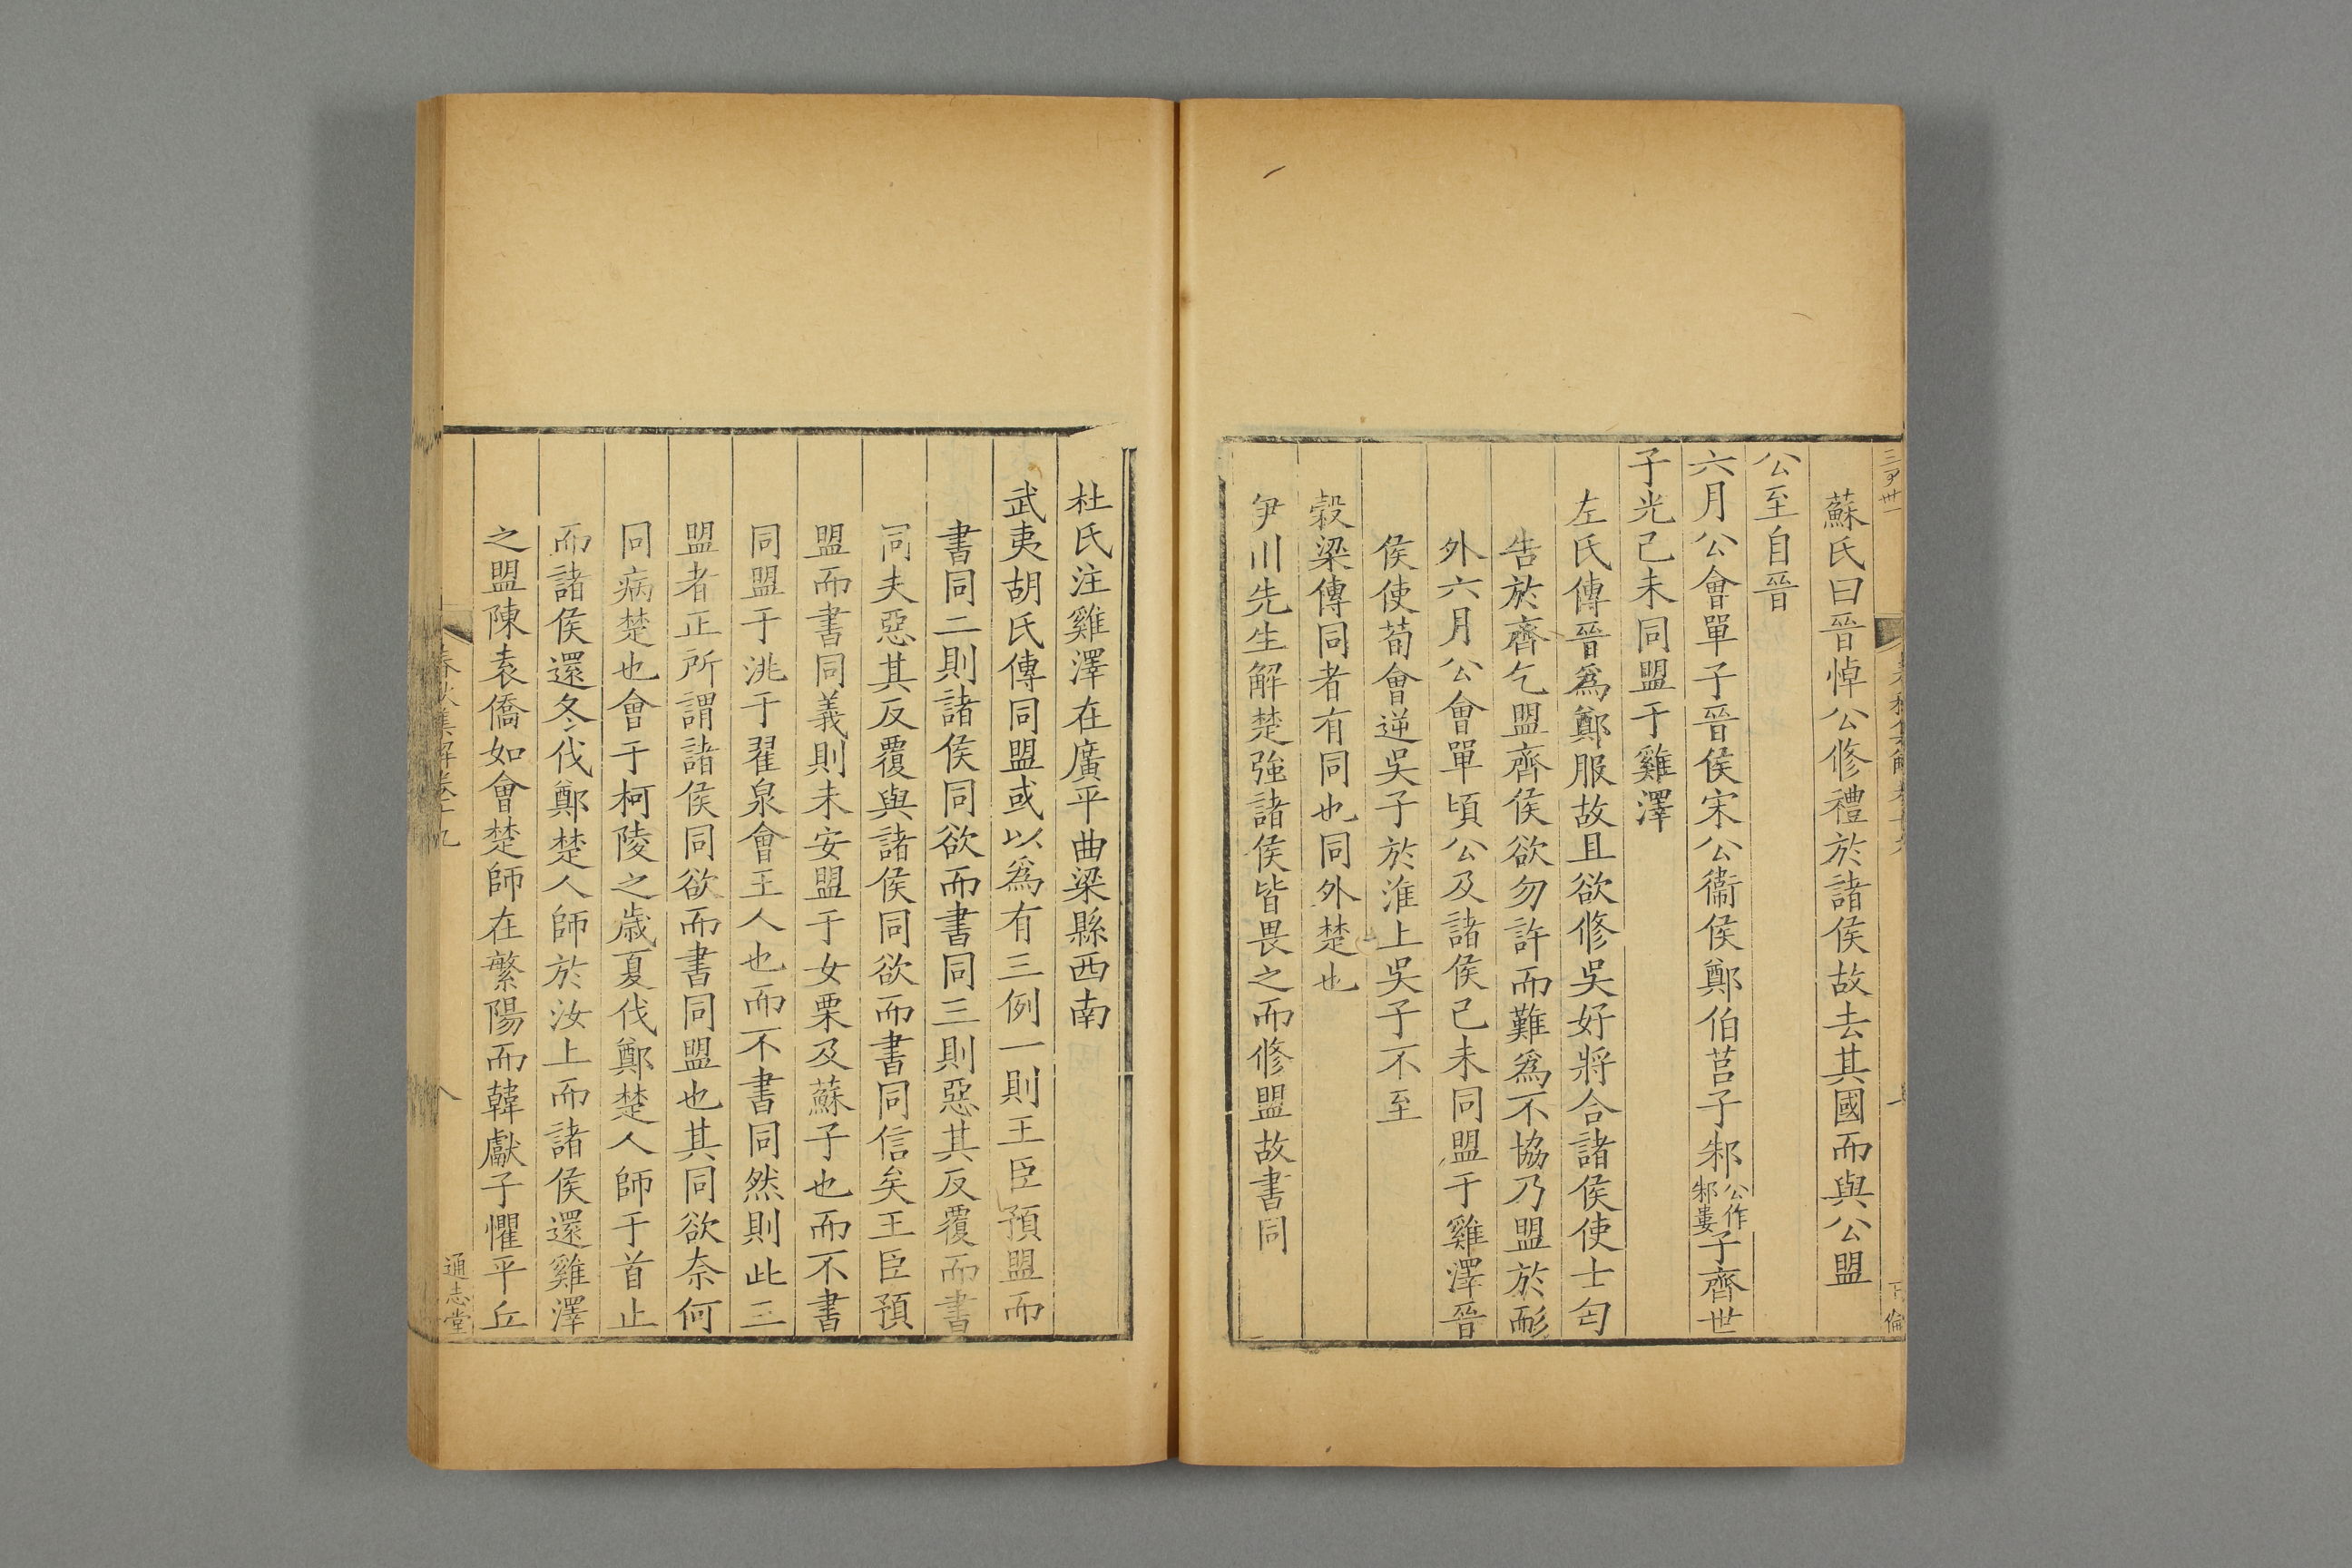 蘇氏曰晉悼公修禮於諸侯故去其國而與公盟
公至自晉
六月公會單子晉侯宋公衞侯鄭伯莒子邾公作邾婁子齊世
子光己未同盟于雞澤
左氏傳晉爲鄭服故且欲修吳好將合諸侯使士匄
告於齊乞盟齊侯欲勿許而難爲不協乃盟於耏
外六月公會單頃公及諸侯己未同盟于雞澤晉
侯使荀會逆吳子於淮上吳子不至
穀梁傳同者有同也同外楚也
伊川先生解楚強諸侯皆畏之而修盟故書同
杜氏注雞澤在廣平曲梁縣西南
武夷胡氏傳同盟或以爲有三例一則王臣預盟而
書同二則諸侯同欲而書同三則惡其反覆而書
同夫惡其反覆與諸侯同欲而書同信矣王臣預
盟而書同義則未安盟于女栗及蘇子也而不書
同盟于洮于翟泉會王人也而不書同然則此三
盟者正所謂諸侯同欲而書同盟也其同欲奈何
同病楚也會于柯陵之歲夏伐鄭楚人師于首止
而諸侯還冬伐鄭楚人師於汝上而諸侯還雞澤
之盟陳袁僑如會楚師在繁陽而韓獻子懼平丘
春秋集解卷十九
八
通志堂